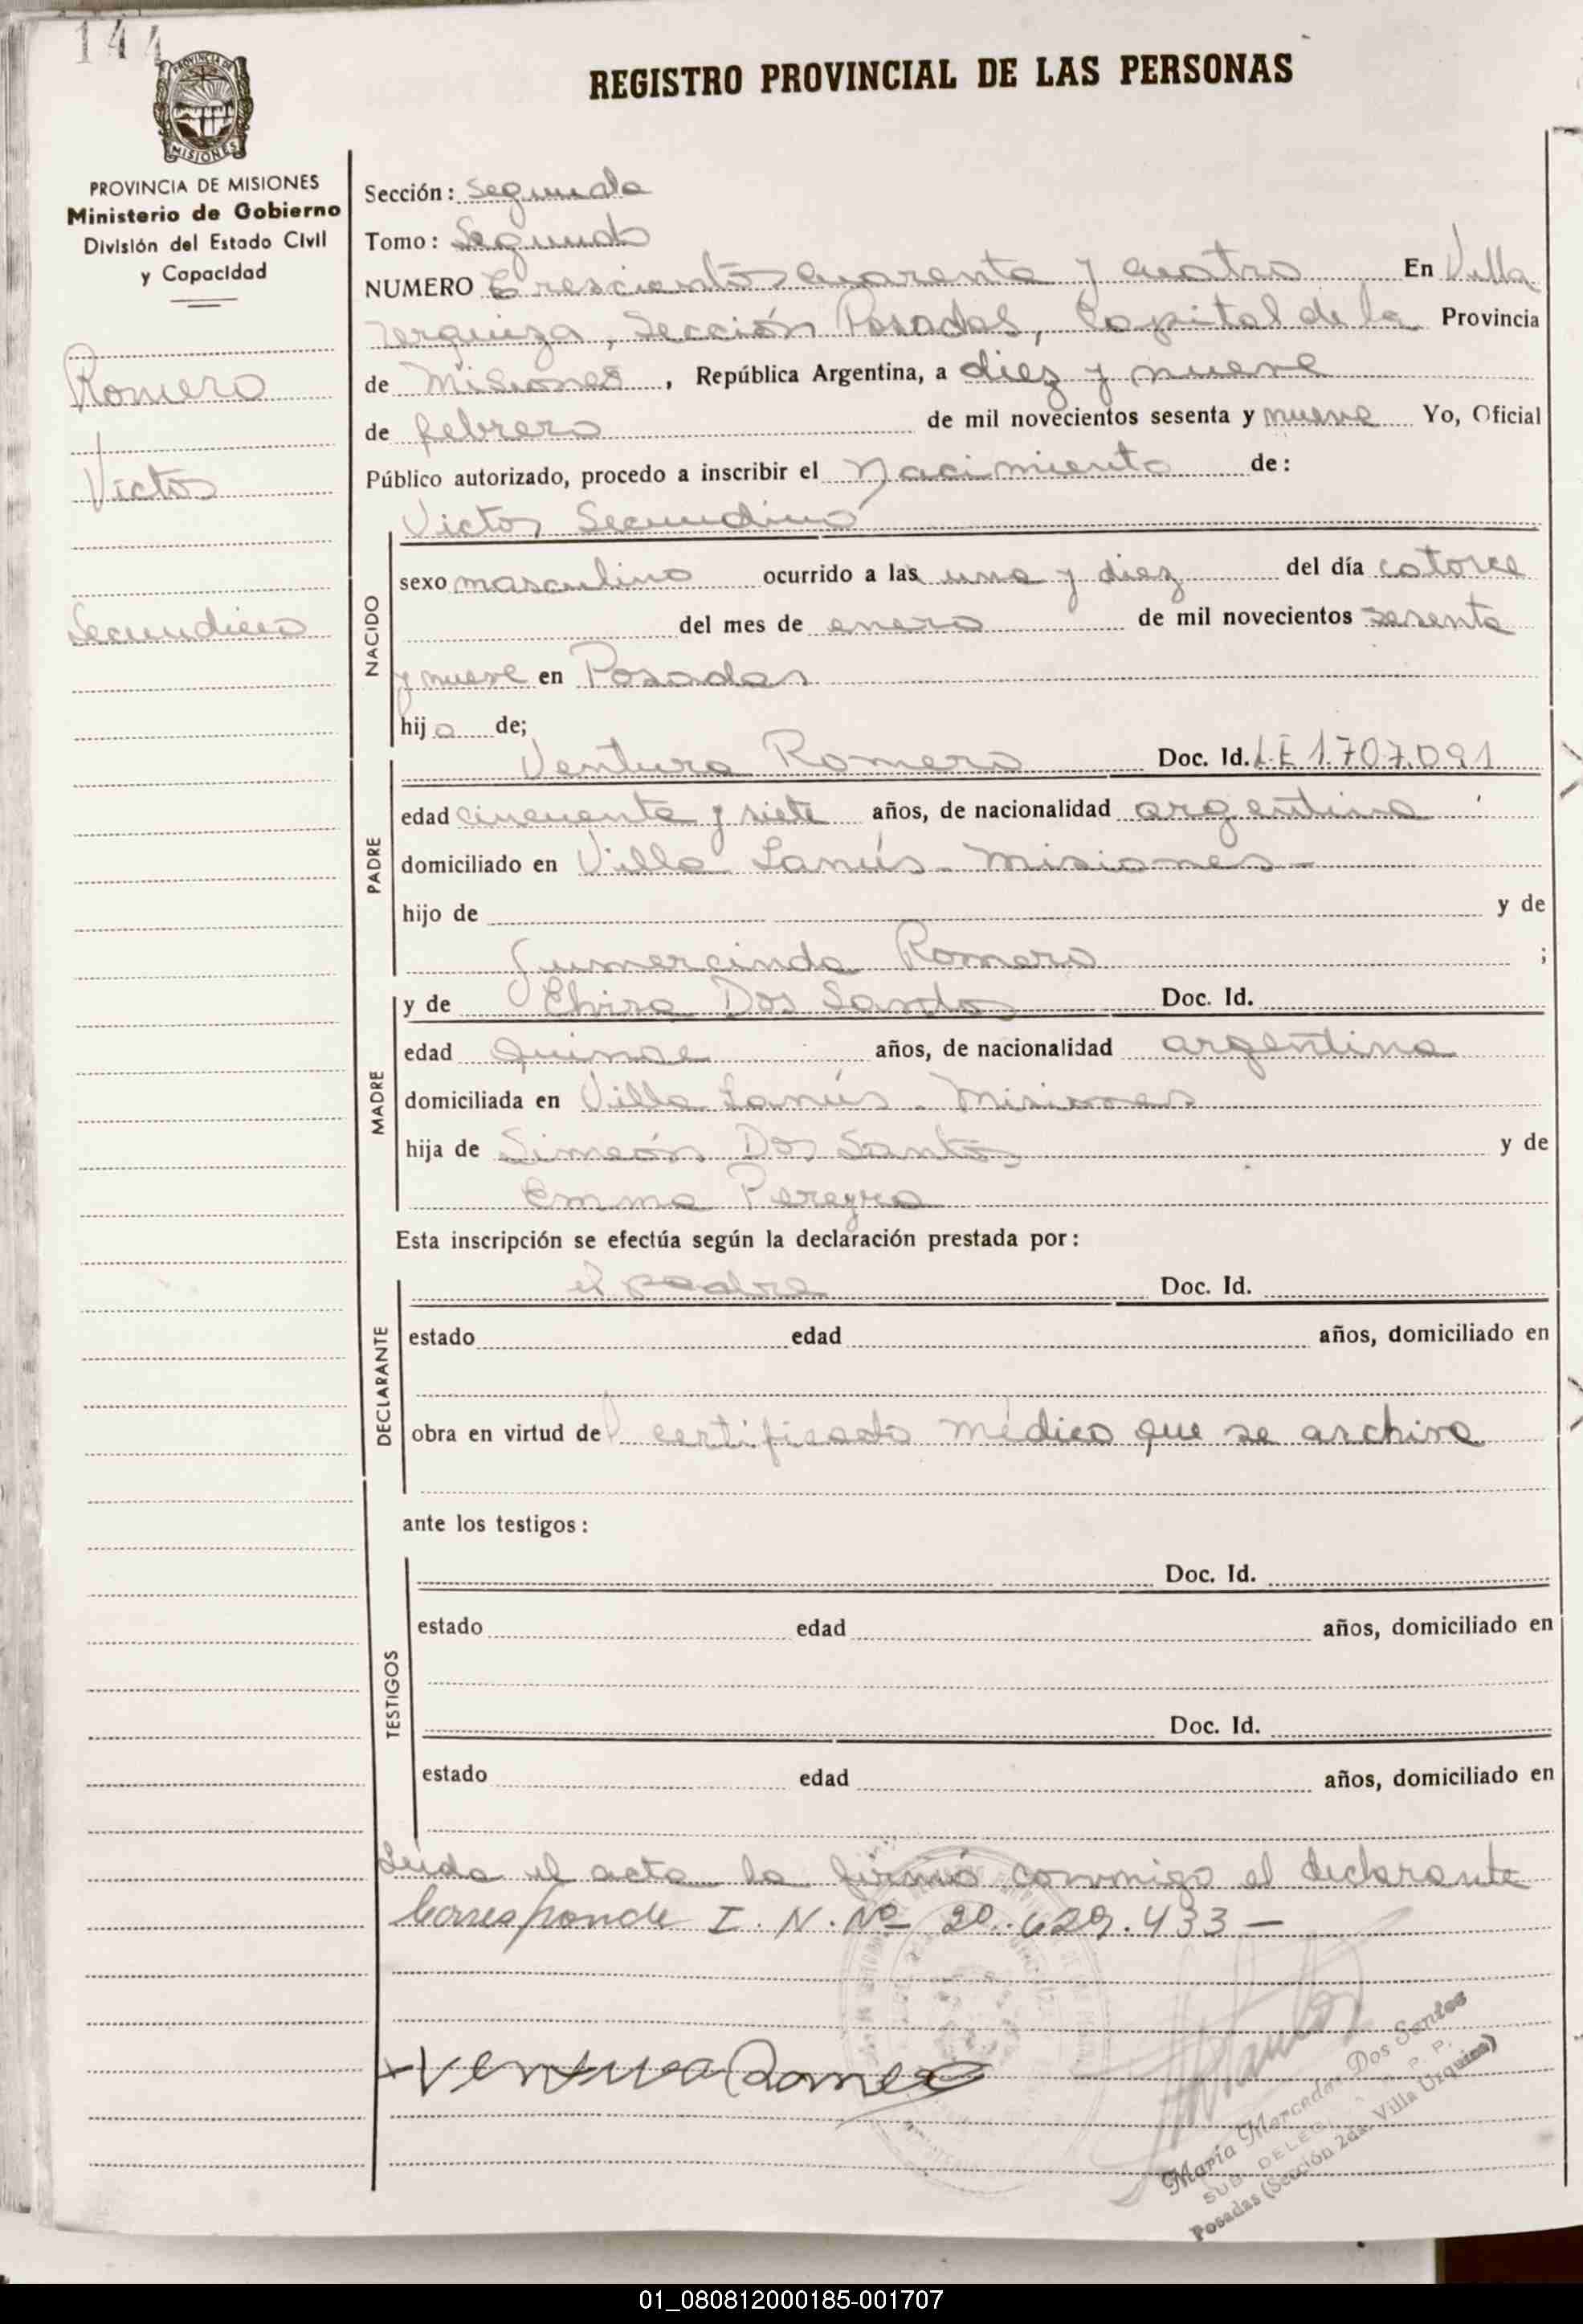 144
PROVINCIA DE
MISIONES
REGISTRO PROVINCIAL DE LAS PERSONAS
PROVINCIA DE MISIONES
Ministerio de Gobierno
División del Estado Civil
y Capacidad
Romero
Victor
Secundino
Sección: Segunda
Tomo: Segundo
NUMERO Trescientos cuarenta y cuatro En Villa
Urquiza, Sección Posadas, Capital de la Provincia
de Misiones, República Argentina, a diez y nueve
de febrero de mil novecientos sesenta y nueve Yo, Oficial
Público autorizado, procedo a inscribir el Nacimiento de:
Victor Secundino
NACIDO
sexo masculino ocurrido a las una y diez del día catorce
del mes de enero de mil novecientos sesenta
y nueve en Posadas
hijo de;
PADRE
Ventura Romero Doc. Id. L.E 1.707.091
edad cincuenta y siete años, de nacionalidad argentina
domiciliado en Villa Lanús - Misiones -
hijo de y de
Gumercinda Romero ;
MADRE
y de Elvira Dos Santos Doc. Id.
edad quince años, de nacionalidad argentina
domiciliada en Villa Lanús - Misiones
hija de Simeón Dos Santos y de
Emma Pereyra
Esta inscripción se efectúa según la declaración prestada por:
DECLARANTE
el padre Doc. Id.
estado edad años, domiciliado en
obra en virtud del certificado médico que se archiva
ante los testigos:
TESTIGOS
Doc. Id.
estado edad años, domiciliado en
Doc. Id.
estado edad años, domiciliado en
Leida el acta la firmó conmigo el declarante
Corresponde I. N. Nº 20.629.433 —
Ventura Romero
María Mercedes Dos Santos
SUB DELEG. R. P. P.
Posadas (Sección 2da. Villa Urquiza)
01_080812000185-001707